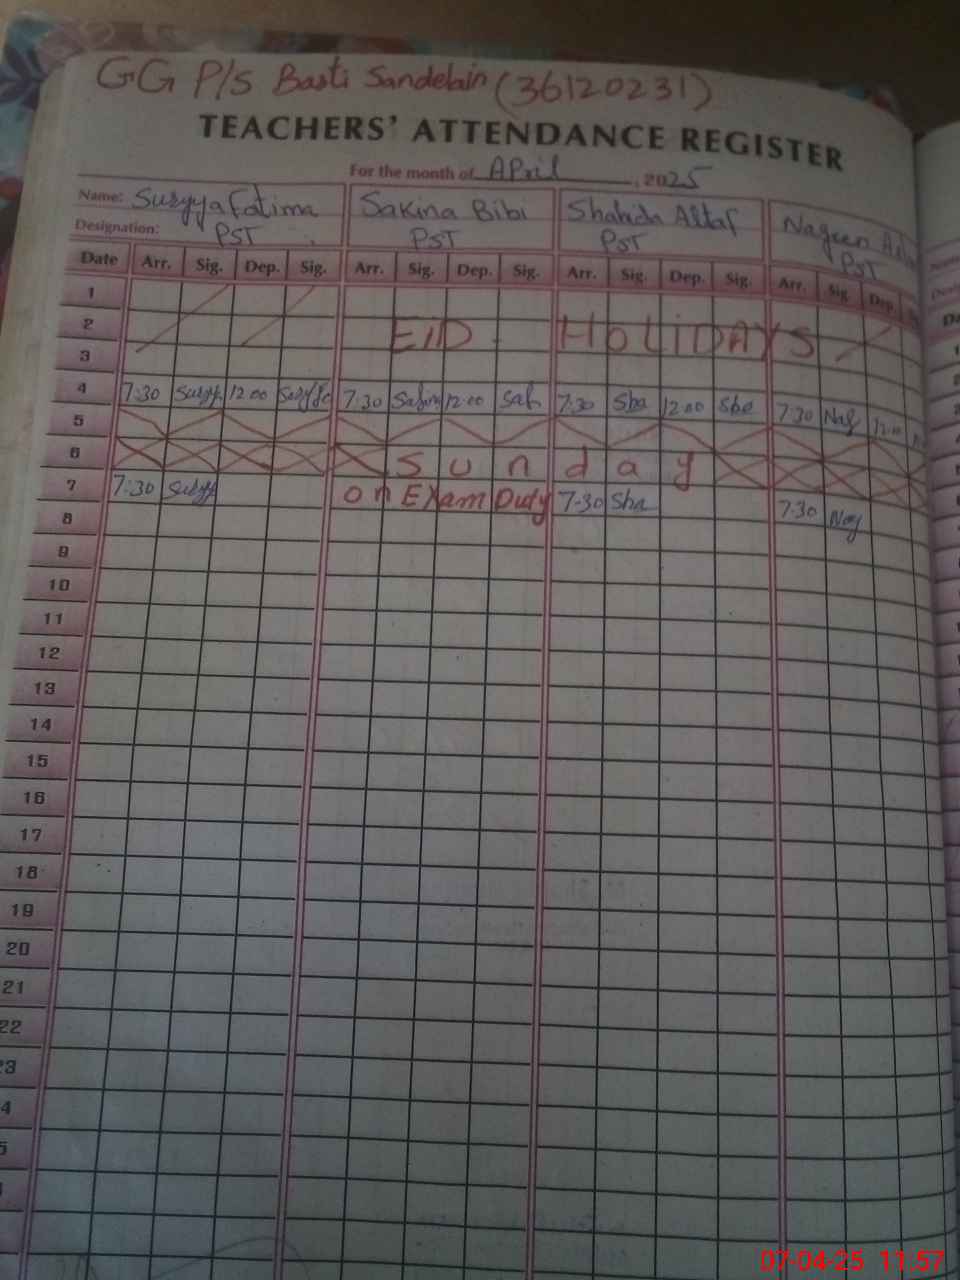 GG P/S Basti Sandelain (36120231)
TEACHERS' ATTENDANCE REGISTER
For the month of April, 2025
Name: Suryya Fatima Sakina Bibi Shahida Altaf Nageen
Designation: PST PST PST PST
Date Arr. Sig. Dep. Sig. Arr. Sig. Dep. Sig. Arr. Sig. Dep. Sig. Arr. Sig. Dep.
1
2 EID HOLIDAYS
3
4 7:30 12:00 7:30 12:00 Sak 7:30 Sha 12:00 Sha 7:30 Nag 12:00
5
6 Sunday
7 7:30 on Exam Duty 7-30 Sha 7:30 Nag
8
9
10
11
12
13
14
15
16
17
18
19
20
21
22
23
4
5
07-04-25 11:57